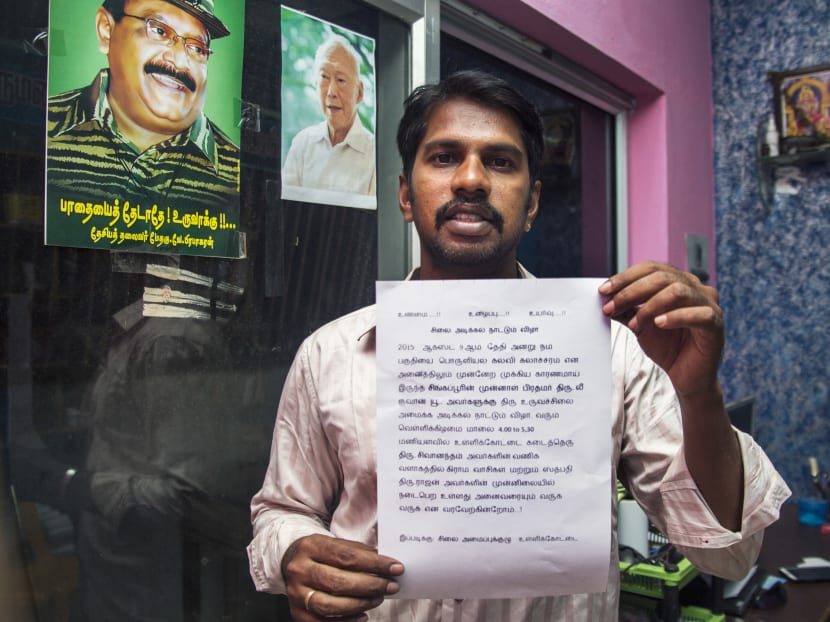 பாதையைத் தேடாதே ! உருவாக்கு !!...
தேசியத் தலைவர் மேதகு.வே.பிரபாகரன்
உண்மை ...!! உழைப்பு ...!! உயர்வு ...!!
சிலை அடிக்கல் நாட்டும் விழா
2015 ஆகஸ்ட் 9 ஆம் தேதி அன்று நம்
பகுதியை பொருளியல் கல்வி கலாச்சாரம் என
அனைத்திலும் முன்னேற முக்கிய காரணமாய்
இருந்த சிங்கப்பூரின் முன்னாள் பிரதமர் திரு. லீ
குவான் யூ.. அவர்களுக்கு திரு உருவச்சிலை
அமைக்க அடிக்கல் நாட்டும் விழா. வரும்
வெள்ளிக்கிழமை மாலை 4.00 to 5.30
மணியளவில் உள்ளிக்கோட்டை கடைத்தெரு
திரு. சிவானந்தம் அவர்களின் வணிக
வளாகத்தில் கிராம வாசிகள் மற்றும் ஸ்தபதி
திரு.ராஜன் அவர்களின் முன்னிலையில்
நடைபெற உள்ளது அனைவரையும் வருக
வருக என வரவேற்கின்றோம்..!
இப்படிக்கு: சிலை அமைப்புக்குழு உள்ளிக்கோட்டை